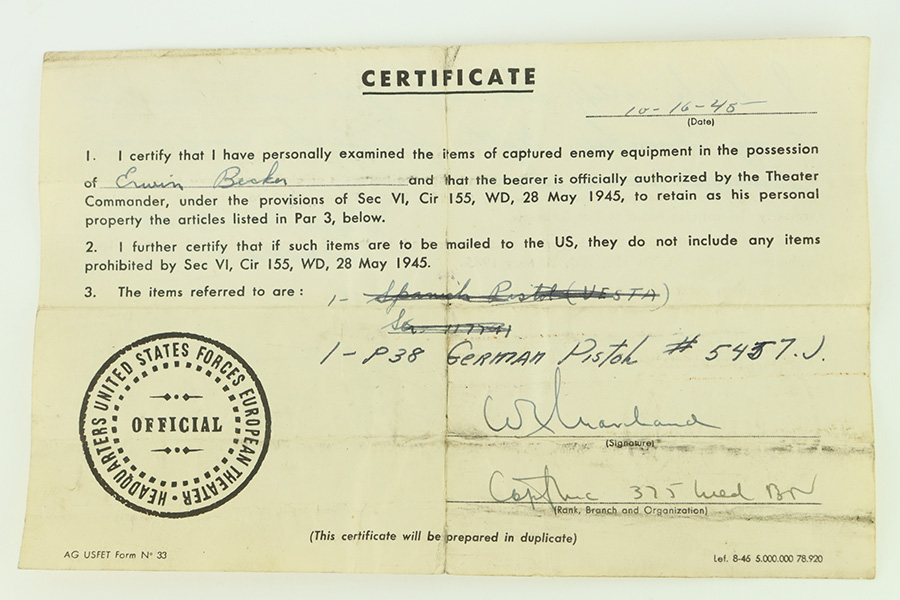 CERTIFICATE
10-16-45
(Date)
1. I certify that I have personally examined the items of captured enemy equipment in the possession
of Erwin Becker and that the bearer is officially authorized by the Theater
Commander, under the provisions of Sec VI, Cir 155, WD, 28 May 1945, to retain as his personal
property the articles listed in Par 3, below.
2. I further certify that if such items are to be mailed to the US, they do not include any items
prohibited by Sec VI, Cir 155, WD, 28 May 1945.
3. The items referred to are : 1- Spanish Pistol (VESTA)
1-P38 GERMAN Pistol # 5457.J.
(Signature)
375 Med BN
(Rank, Branch and Organization)
HEADQUARTERS UNITED STATES FORCES EUROPEAN THEATER
OFFICIAL
(This certificate will be prepared in duplicate)
AG USFET Form N° 33
Lef. 8-45 5.000.000 78.920